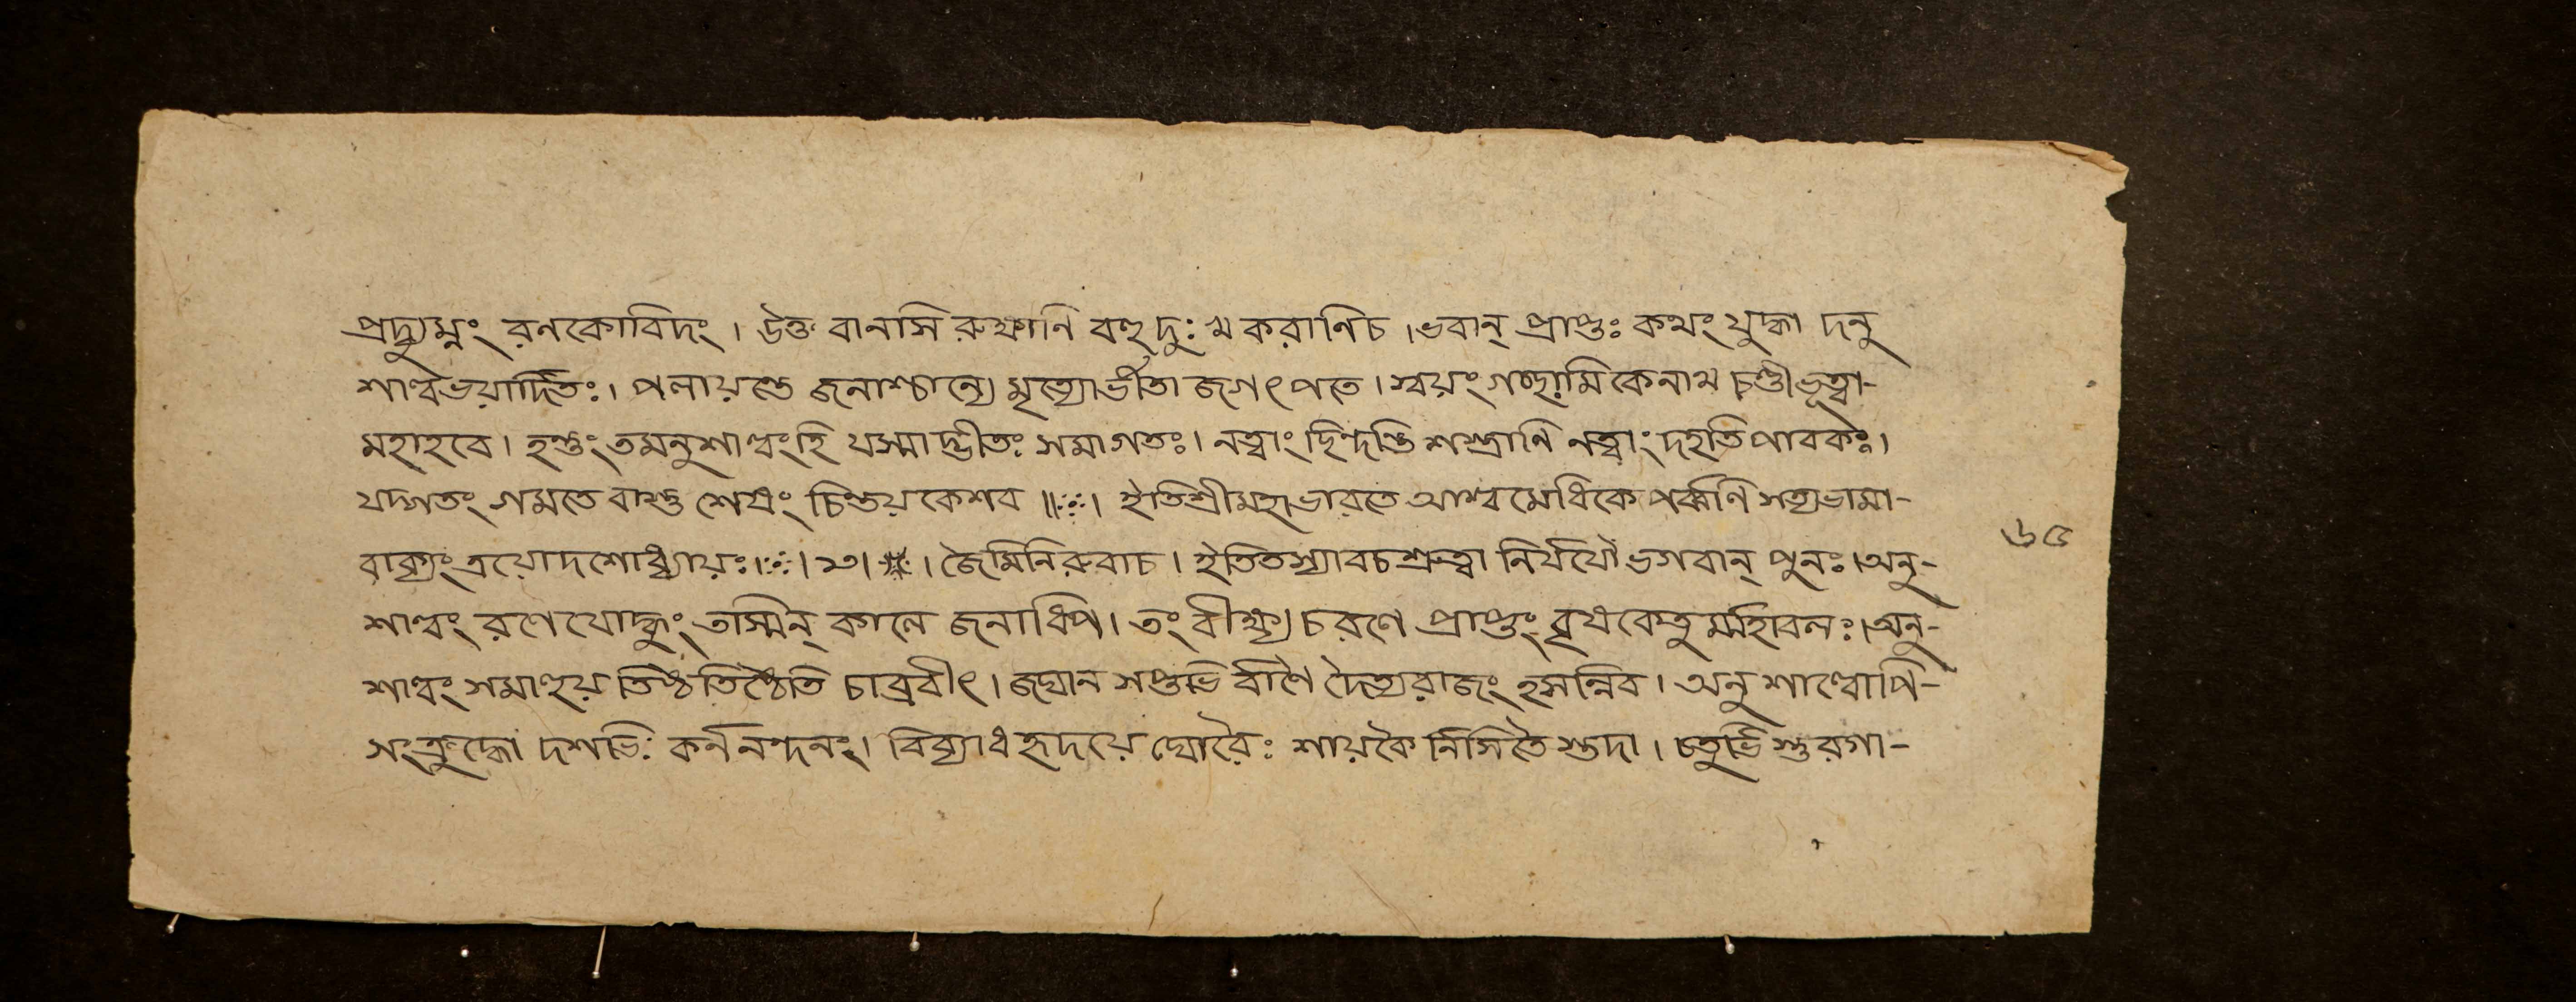 প্রদ্যুম্নং রনকোবিদং । উক্ত বানসি রুক্ষানি বহু দুঃখ করানিচ । ভবান্ প্রাপ্তঃ কথং যুদ্ধা দনু
শাল্বভয়ার্দিতঃ । পলায়ন্তে জনাশ্চান্যে মৃত্যোর্ভীতা জগৎ পতে । স্বয়ং গচ্ছামি কেনাথ চণ্ডী ভূত্বা-
মহাহবে । হন্তুং তমনুশাল্বংহি যস্মাদ্ভীতঃ সমাগতঃ । নত্বাং ছিন্দন্তি শস্ত্রানি নত্বাং দহতি পাবকঃ ।
যদ্গতং গমতে বাস্তু শেষং চিন্তয় কেশব ॥ঃ। ইতিশ্রীমহাভারতে আশ্বমেধিকে পর্ব্বণি সত্যভামা-
বাক্যং ত্রয়োদশোধ্যায়ঃ । ১৩ । জৈমিনিরুবাচ । ইতিতস্যাবচশ্রুত্বা নির্যযৌ ভগবান্ পুনঃ । অনু-
শাল্বং রণে যোদ্ধুং তস্মিন্ কালে জনাধিপ । তং বীক্ষ্য চরণে প্রাপ্তং বৃষকেতু র্ম্মহাবলঃ । অনু-
শাল্বং সমাহুয় তিষ্ঠ তিষ্ঠেতি চাব্রবীৎ । জঘান সপ্তভি র্বাণৈ দৈত্যরাজং হসন্নিব । অনু শাল্বোপি-
সংক্রুদ্ধো দশভিঃ কর্ননন্দনং । বিব্যাধ হৃদয়ে ঘোরৈঃ শায়কৈ র্নিসিতৈ স্তদা । চতুর্ভি স্তুরগা-
৬৫